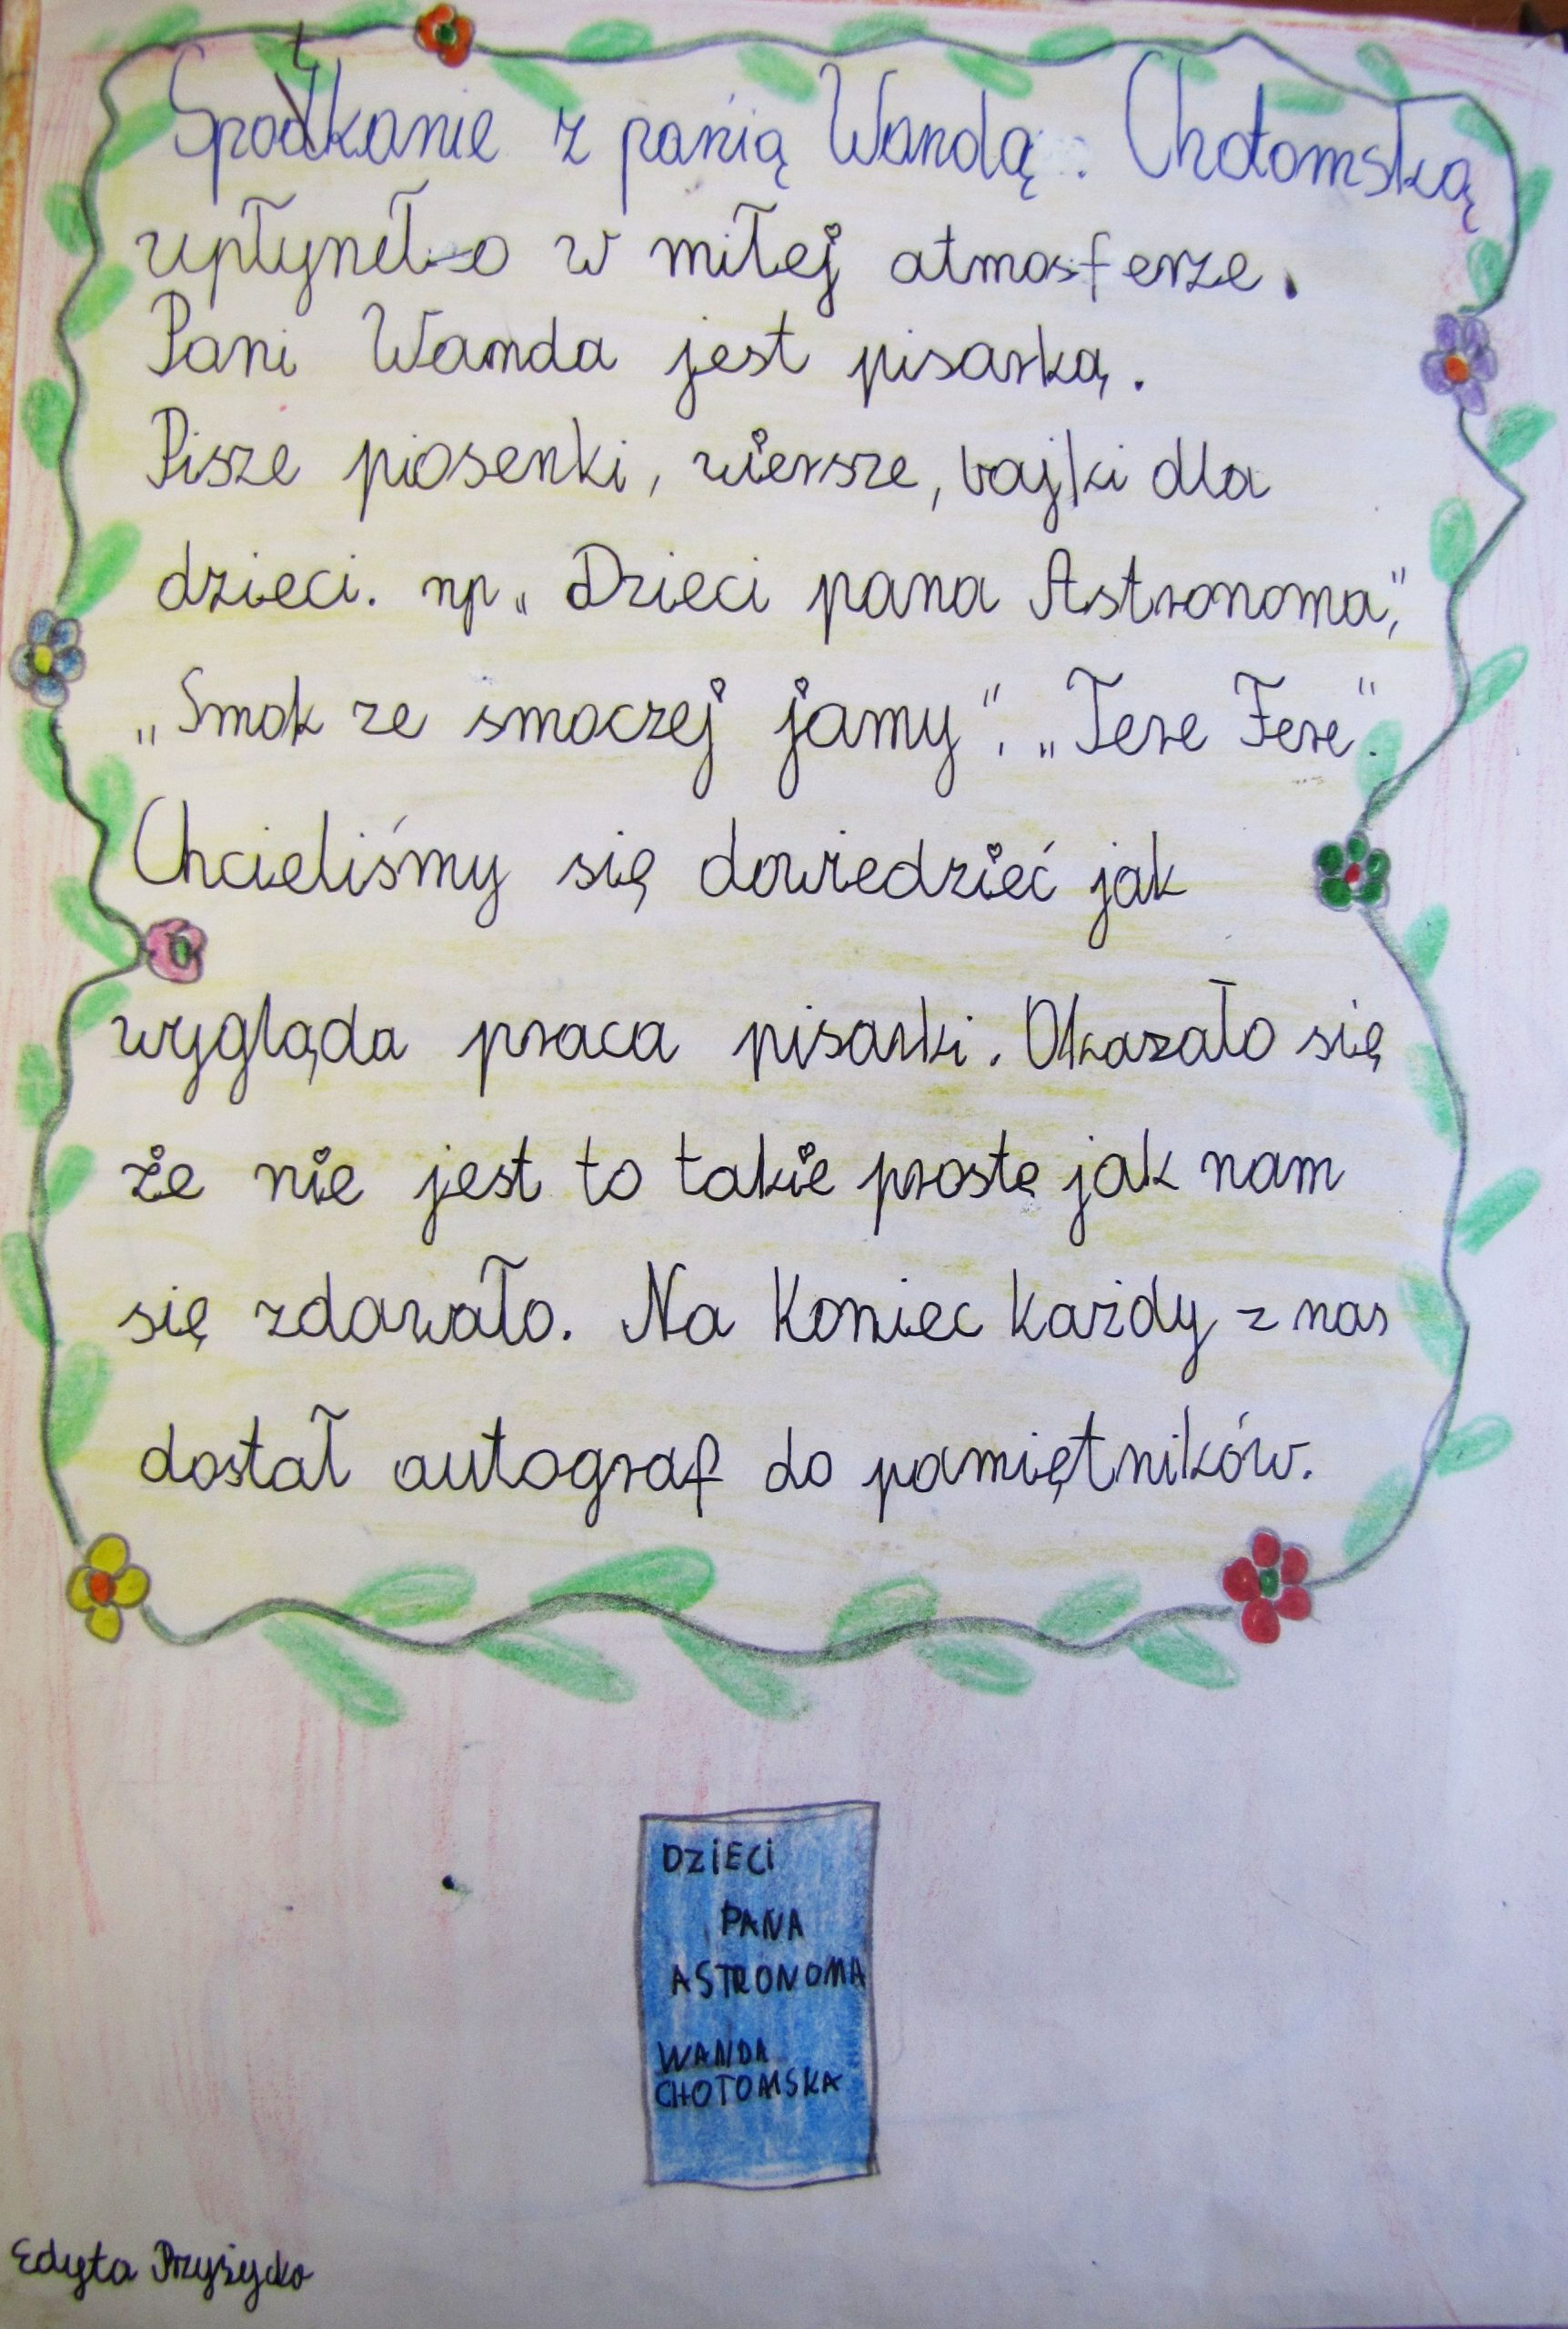 Spotkanie z panią Wandą Chotomską
upłynęło w miłej atmosferze.
Pani Wanda jest pisarką.
Pisze piosenki, wiersze, bajki dla
dzieci. np „Dzieci pana Astronoma",
„Smok ze smoczej jamy". „Tere Fere".
Chcieliśmy się dowiedzieć jak
wygląda praca pisarki. Okazało się
że nie jest to takie proste jak nam
się zdawało. Na koniec każdy z nas
dostał autograf do pamiętników.
DZIECI
PANA
ASTRONOMA
WANDA
CHOTOMSKA
Edyta